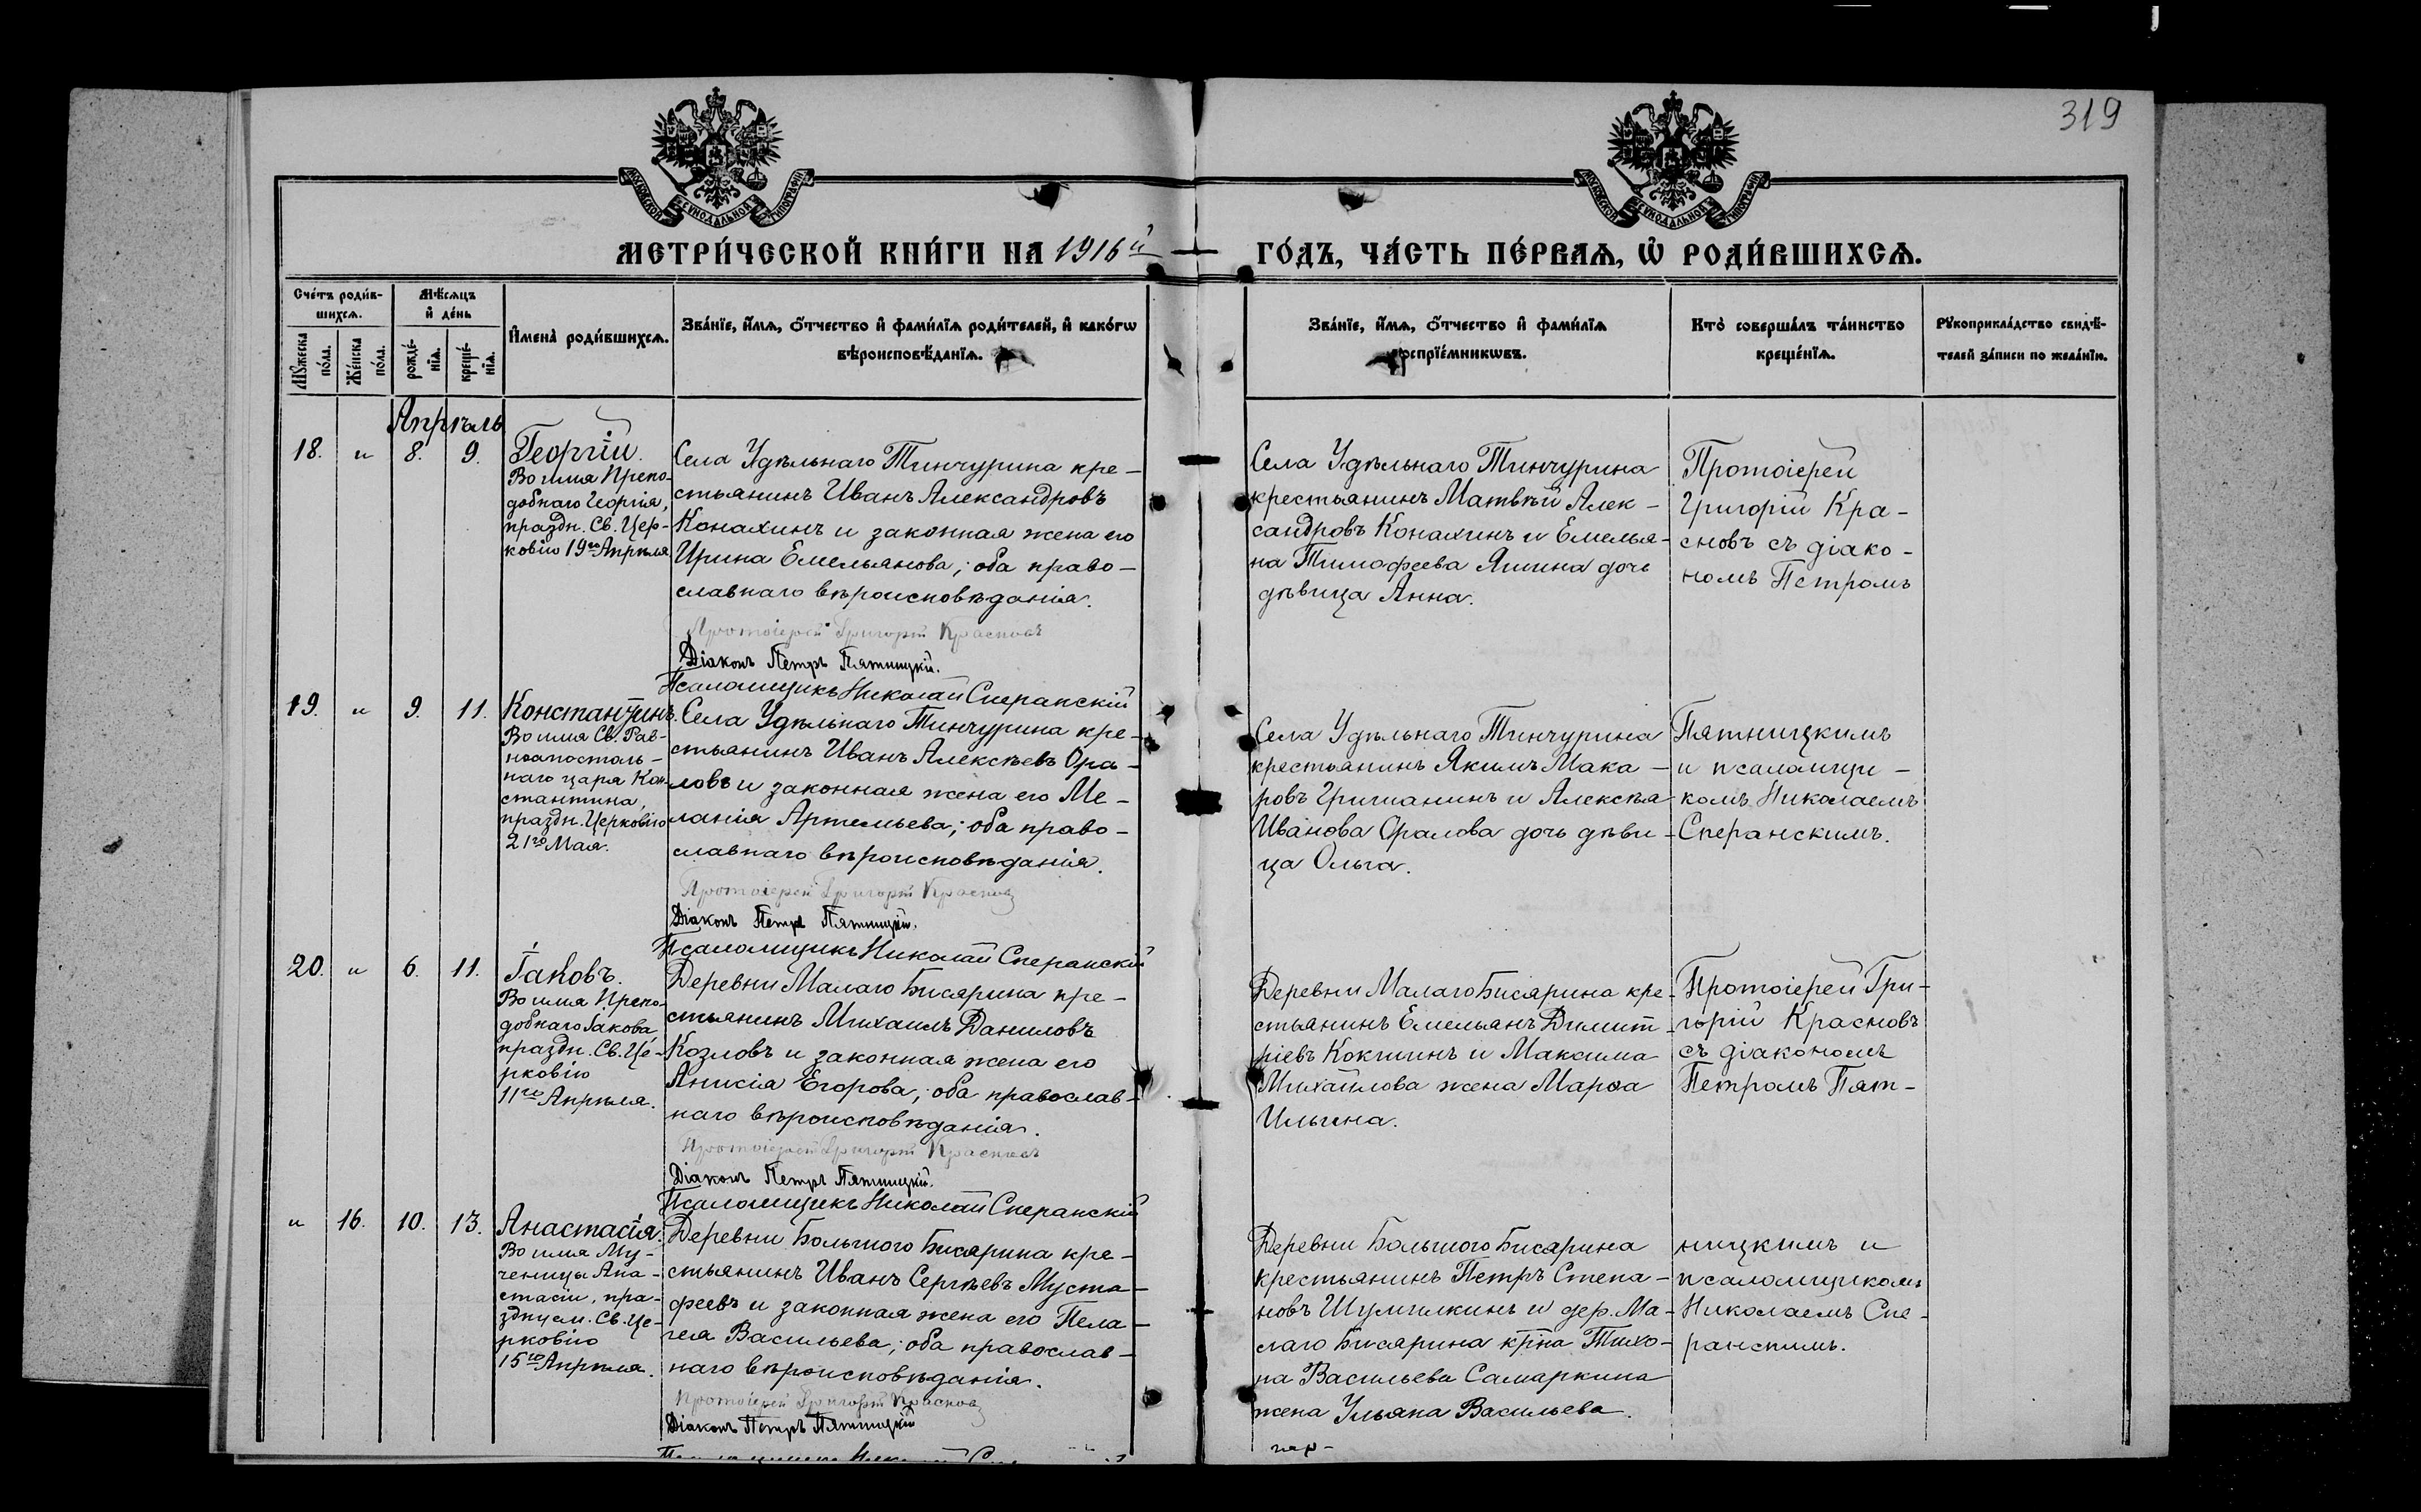 319
МОСКОВСКОЙ СѴНОДАЛЬНОЙ ТИПОГРАФІИ
МОСКОВСКОЙ СѴНОДАЛЬНОЙ ТИПОГРАФІИ
МЕТРИ́ЧЕСКОЙ КНИ́ГИ НА 1916й
ГО́ДЪ, ЧА́СТЬ ПЕ́РВАѦ, Ѡ҆ РОДИ́ВШИХСѦ.
Сче́тъ роди́в-
шихсѧ.
Мꙋ́жеска
по́ла.
Же́нска
по́ла.
Мѣ́сѧцъ
и҆ де́нь
рожде́-
нїѧ.
креще́-
нїѧ.
И҆мена̀ роди́вшихсѧ.
Зва́нїе, и҆́мѧ, ѻ҆́тчество и҆ фами́лїѧ роди́телей, и҆ како́гѡ
вѣроисповѣ́данїѧ.
Зва́нїе, и҆́мѧ, ѻ҆́тчество и҆ фами́лїѧ
воспрїе́мникѡвъ.
Кто̀ соверша́лъ та́инство
креще́нїѧ.
Рꙋкоприкла́дство свидѣ́-
телей за́писи по жела́нїю.
Апрѣль
18.
"
8.
9.
Георгій.
Во имя Препо-
добнаго Георгія,
праздн. Св. Цер-
ковію 19го Апрѣля
Села Удѣльнаго Тинчурина кре-
стьянинъ Иванъ Александровъ
Конахинъ и законная жена его
Ирина Емельянова; оба право-
славнаго вѣроисповѣданія.
Протоіерей Григорій Красновъ
Діаконъ Петръ Пятницкій.
Псаломщикъ Николай Сперанскій
Села Удѣльнаго Тинчурина
крестьянинъ Матвѣй Алек-
сандровъ Конахинъ и Емелья-
на Тимофеева Яшина дочь
дѣвица Анна.
Протоіерей
Григорій Кра-
сновъ съ діако-
номъ Петромъ
19.
"
9.
11.
Константинъ.
Во имя Св. Рав-
ноапостоль-
наго царя Кон-
стантина,
праздн. Церковію
21го Мая.
Села Удѣльнаго Тинчурина кре-
стьянинъ Иванъ Алексѣевъ Ора-
ловъ и законная жена его Ме-
ланія Артемьева; оба право-
славнаго вѣроисповѣданія.
Протоіерей Григорій Красновъ
Діаконъ Петръ Пятницкій.
Псаломщикъ Николай Сперанскій
Села Удѣльнаго Тинчурина
крестьянинъ Якимъ Мака-
ровъ Гришанинъ и Алексѣя
Иванова Оралова дочь дѣви-
ца Ольга.
Пятницкимъ
и псаломщи-
комъ Николаемъ
Сперанскимъ.
20.
"
6.
11.
Іаковъ.
Во имя Препо-
добнаго Іакова
праздн. Св. Це-
рковію
11го Апрѣля.
Деревни Малаго Бисярина кре-
стьянинъ Михаилъ Даниловъ
Козловъ и законная жена его
Анисія Егорова; оба православ-
наго вѣроисповѣданія.
Протоіерей Григорій Красновъ
Діаконъ Петръ Пятницкій.
Псаломщикъ Николай Сперанскій
Деревни Малаго Бисярина кре-
стьянинъ Емельянъ Димит-
ріевъ Кокшинъ и Максима
Михайлова жена Марѳа
Ильина.
Протоіерей Гри-
горій Красновъ
съ діакономъ
Петромъ Пят-
"
16.
10.
13.
Анастасія.
Во имя Му-
ченицы Ана-
стасіи, пра-
зднуем. Св. Це-
рковію
15го Апрѣля.
Деревни Большого Бисярина кре-
стьянинъ Иванъ Сергѣевъ Муста-
феевъ и законная жена его Пела-
гея Васильева; оба православ-
наго вѣроисповѣданія.
Протоіерей Григорій Красновъ
Діаконъ Петръ Пятницкій
Деревни Большого Бисярина
крестьянинъ Петръ Степа-
новъ Шумилкинъ и дер. Ма-
лаго Бисярина кр҃на Тихо-
на Васильева Самаркина
жена Ульяна Васильева.
ницкимъ и
псаломщикомъ
Николаемъ Спе-
ранскимъ.